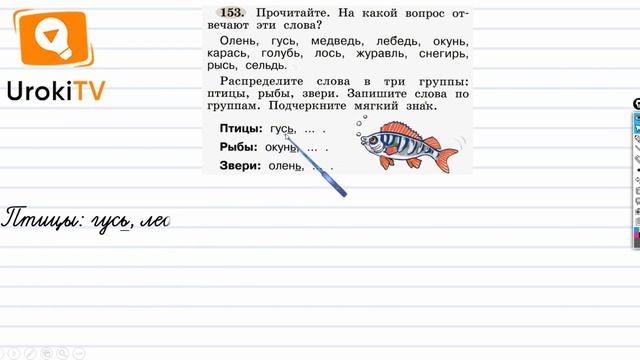 153. Прочитайте. На какой вопрос от-
вечают эти слова?
Олень, гусь, медведь, лебедь, окунь,
карась, голубь, лось, журавль, снегирь,
рысь, сельдь.
Распределите слова в три группы:
птицы, рыбы, звери. Запишите слова по
группам. Подчеркните мягкий знак.
Птицы: гусь, ... .
Рыбы: окунь, ... .
Звери: олень, ... .
UrokiTV
Птицы: гусь, лео